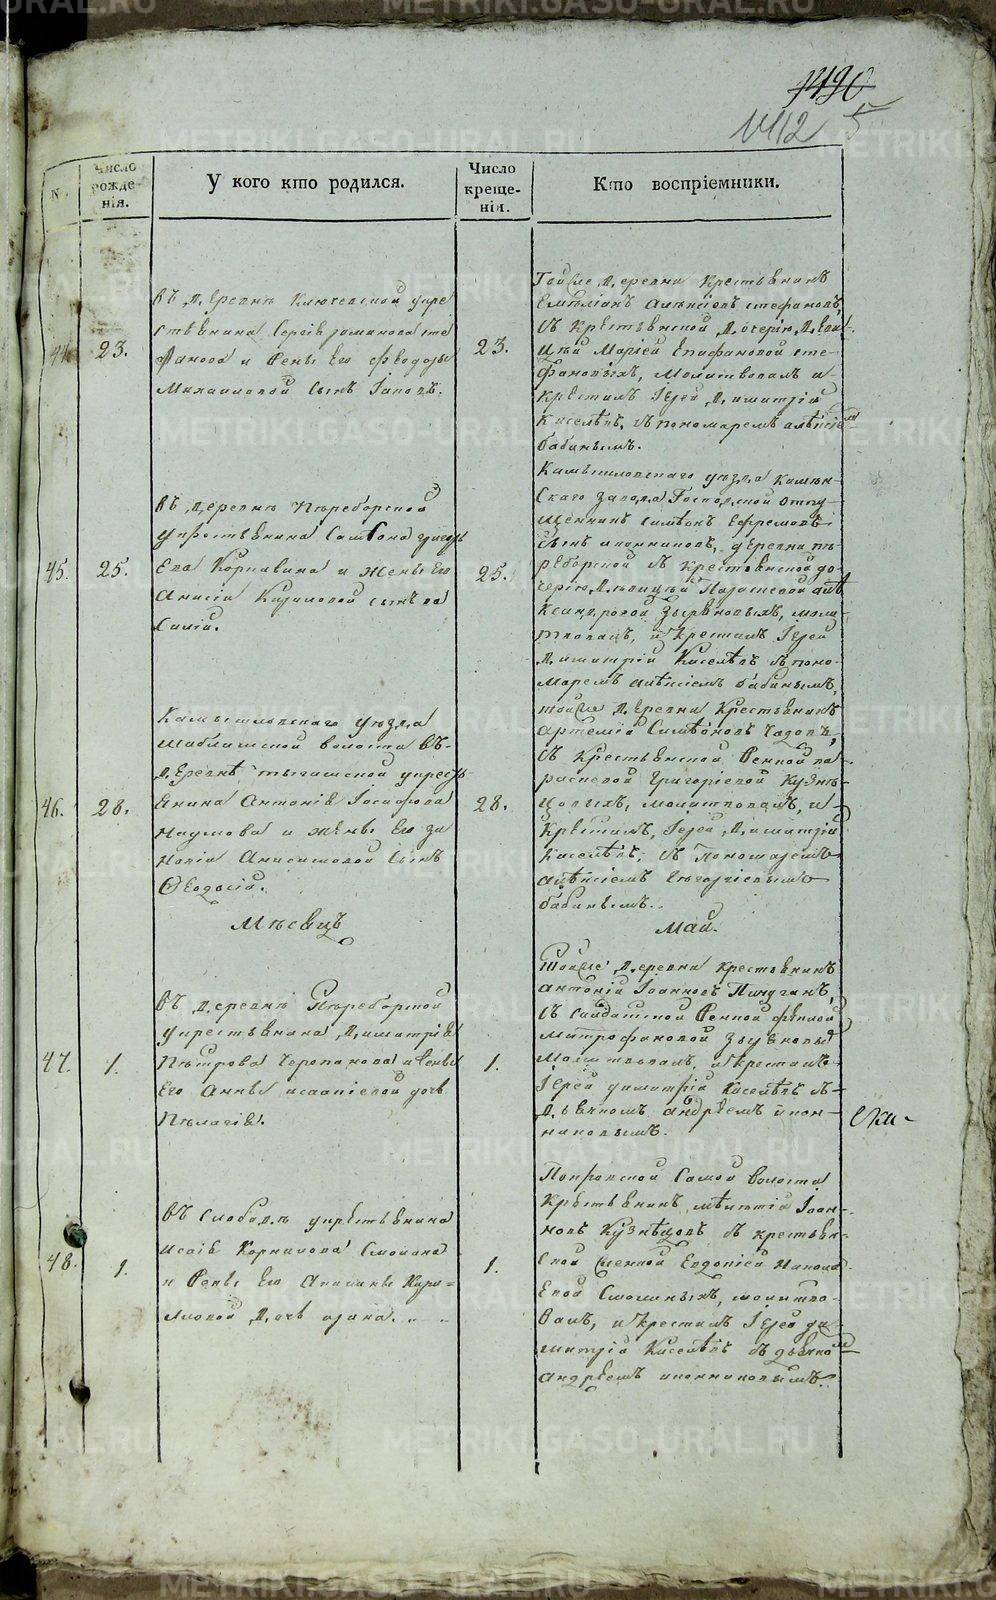 1490
1412 5
№
Число рожде-
нія.
У кого кто родился.
Число креще-
нія.
Кто воспріемники.
44. 23.
Въ деревнѣ Ключевской укре
стьянина Сергія Романова сте
фанова и жены его Феодоры
Михаиловой сынъ Іаковъ.
23.
Тойже деревни Крестьянинъ
Емеліанъ Алексіевъ стефановъ,
съ Крестьянской дочерію, деви-
цей Маріей Епифановой сте-
фановыхъ, Молитвовалъ и
Крестилъ Іерей Димитрій
Киселевъ, съ пономаремъ алексіемъ
бабинымъ.
45. 25.
Въ деревнѣ Переборской
укрестьянина Самсона григорь
ева Корнавина и жены его
Анисіи Кириловой сынъ ва
силій.
25.
Камышловскаго уезда камен-
скаго завода Господской отпу-
щенникъ симеонъ Ефремовъ
сынъ иконниковъ, деревни пе-
реборской съ крестьянской до-
черію девицей Парасковой але
ксандровой Зыряновыхъ, моли
твовалъ, и крестилъ Іерей
Димитрій Киселевъ съ поно-
маремъ алексіемъ бабинымъ,
46. 28.
Камышловскаго уезда
шаблишской волости въ
деревнѣ тыгишской укресть
янина Антонія Іосифова
Наумова и жены его зи
новіи Анисимовой сынъ
Ѳеодосій.
28.
тойже деревни Крестьянинъ
артемій Симеоновъ Чадовъ,
съ крестьянской женкой па
расковой Григоріевой Кузне-
цовыхъ, молитвовалъ, и
крестилъ, Іерей, Димитрій
Киселевъ, съ Пономаремъ
алексіемъ Григоріевымъ
бабинымъ.
Мѣсяцъ
Маій.
47. 1.
Въ деревнѣ Переборской
укрестьянина, Димитрія
Петрова Черепанова и жены
его Анны исаакіевой дочь
Пелагія.
1.
Тойже деревни крестьянинъ
антоній Іоанновъ Пичуганъ,
съ Салдатской женкой феклой
митрофановой
Молитвовалъ, и крестилъ
Іерей димитрій Киселевъ съ
Дьячкомъ андреемъ икон-
никовымъ.
48. 1.
Въ слободѣ укрестьянина
исаіи Корнилова Смолина
и жены его Кири-
ловой дочь ирина.
1.
Покровской самой волости
Крестьянинъ, Іоан-
новъ Кузнецовъ съ крестьян-
ской женкой Евдокіей
евой Смолиныхъ, молитво-
валъ, и крестилъ Іерей ди-
митрій Киселевъ съ дьячкомъ
андреемъ иконниковымъ.